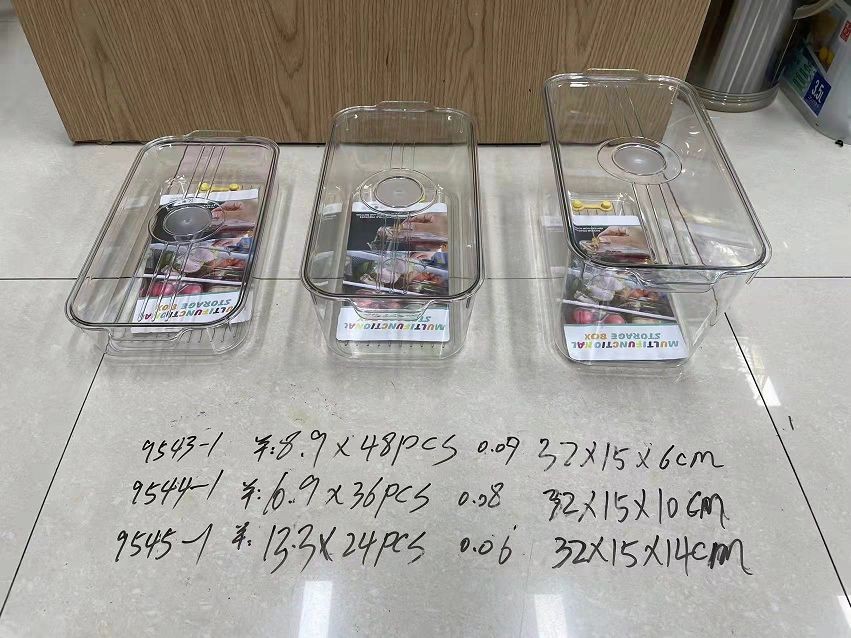 3.5L
MULTIFUNCTIONAL
STORAGE BOX
MULTIFUNCTIONAL
MULTIFUNCTIONAL
STORAGE BOX
9543-1 羊:8.9×48PCS 0.09 32×15×6cm
9544-1 羊:6.9×36PCS 0.08 32×15×10cm
9545-1 羊:13.3×24PCS 0.06 32×15×14cm